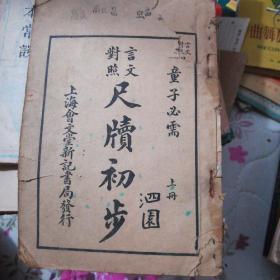 童子必需
上册
言文
對照
尺牘初步
泗園
上海會文堂新記書局發行